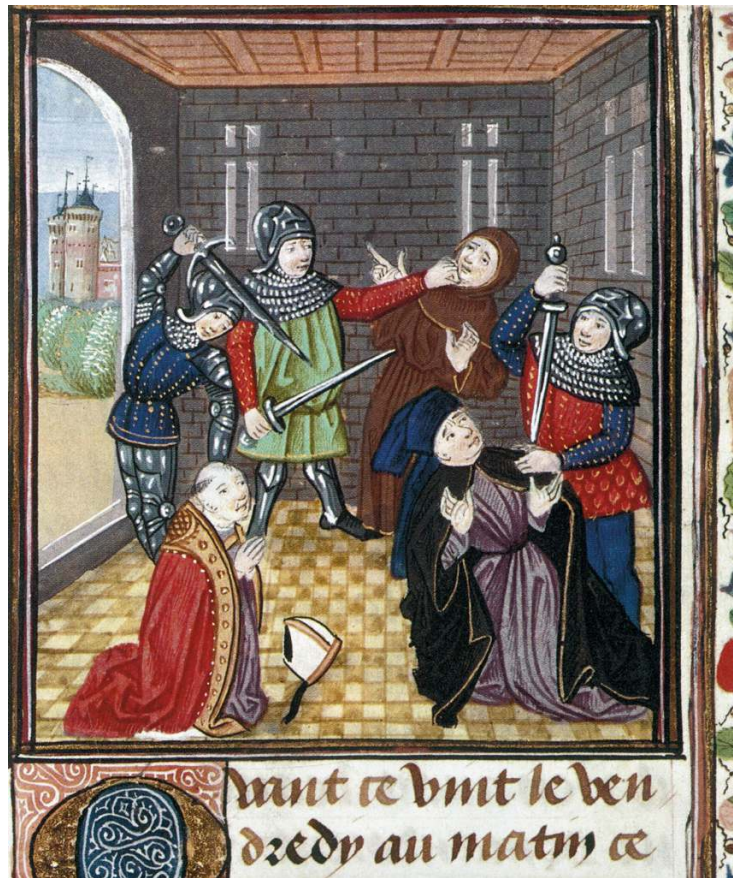 Quant ce vint le ven
dredy au matin ce